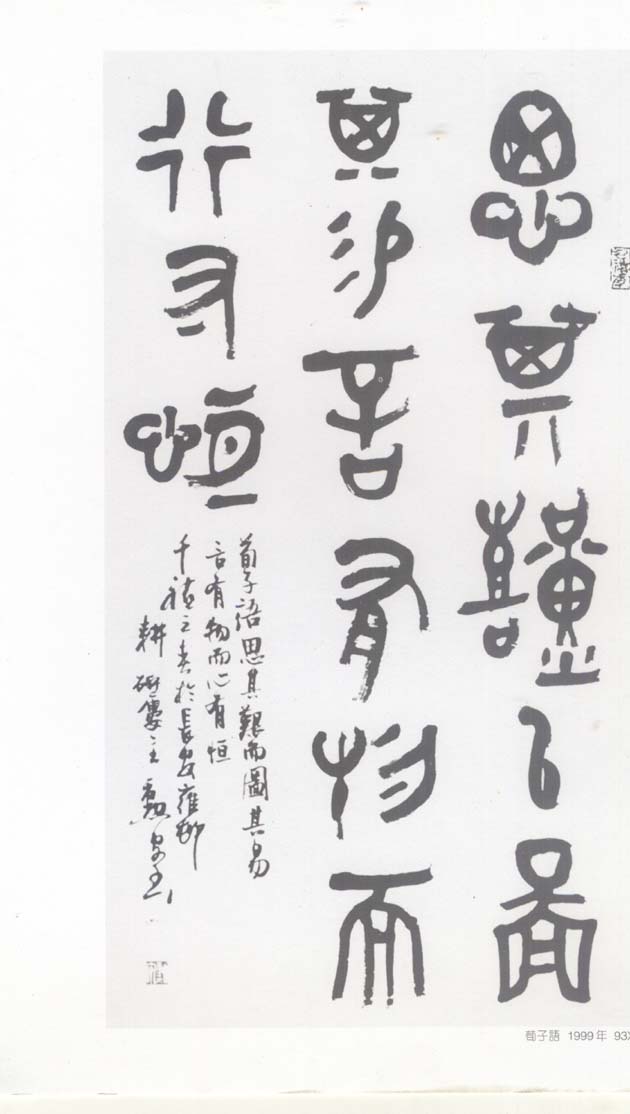 思其艱以圖
其易言有物而
行有恆
荀子語思其艱而圖其易
言有物而心有恒
千禧之春於長安雍邨
耕 主
荀子語 1999年 93X